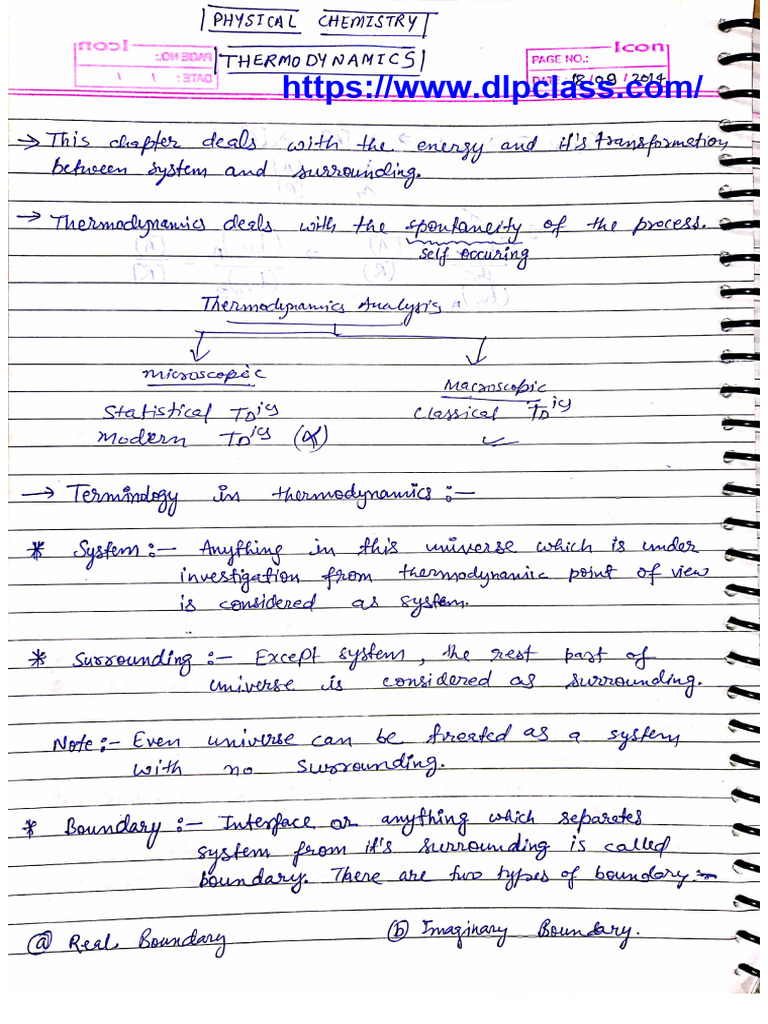 PHYSICAL CHEMISTRY
THERMODYNAMICS
Icon
PAGE NO.:
DATE: 18/09/2014
https://www.dlpclass.com/
→ This chapter deals with the energy and it's transformation
between system and surrounding.
→ Thermodynamics deals with the spontaneity of the process.
self occuring
Thermodynamics Analysis
Microscopic
Macroscopic
Statistical TDics
Classical TDics
Modern TDics (X)
✓
→ Terminology in thermodynamics:-
* System:- Anything in this universe which is under
investigation from thermodynamic point of view
is considered as system.
* Surrounding:- Except system, the rest part of
universe is considered as surrounding.
Note:- Even universe can be treated as a system
with no surrounding.
* Boundary:- Interface or anything which separates
system from it's surrounding is called
boundary. There are two types of boundary:-
(a) Real Boundary (b) Imaginary Boundary.